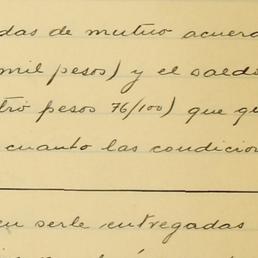 das de mutuo acuerd
mil pesos) y el sald
tro pesos 76/100) que q
cuanto las condicion
en serle entregadas